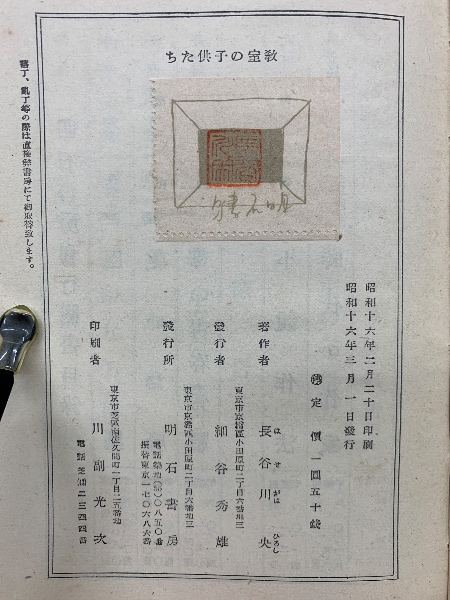 教室の子供たち
昭和十六年二月二十日印刷
昭和十六年三月一日發行
定價一圓五十錢
著作者 長谷川央
はせがはひろし
東京市京橋區小田原町二丁目六番地三
發行者 細谷秀雄
東京市京橋區小田原町二丁目六番地三
發行所 明石書房
振替東京一七〇六八六番
東京市芝區南佐久間町一丁目二五番地
印刷者 川副光次
落丁、亂丁等の際は直接弊書房にて御取替致します。